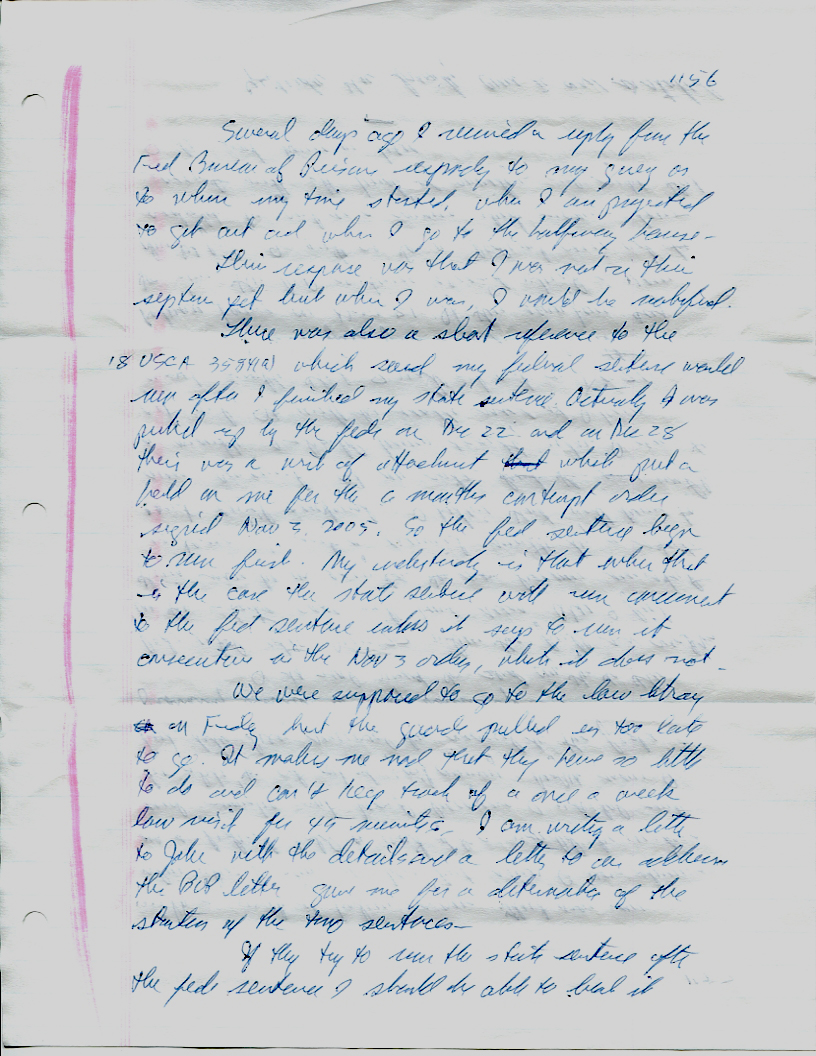 1156
Several days ago I received a reply from the
Fed Bureau of Prisons respondg to my query as
to when my time started, when I am projected
to get out and when I go to the halfway house -
Their response was that I was not in their
system yet but when I was, I would be notified.
There was also a short reference to the
18 USCA 3584(a) which said my federal sentence would
run after I finished my state sentence. Actually I was
picked up by the feds on Dec 22 and on Dec 28
their was a writ of attachment which put a
hold on me for the 6 months contempt order
signed Nov 3, 2005. So the fed sentence began
to run first. My understandg is that when that
is the case the state sentence will run concurrent
to the fed sentence unless it says to run it
consecutive in the Nov 3 order, which it does not -
We were supposed to go to the law library
on Friday but the guards pulled us too late
to go. It makes me mad that they have so little
to do and can't keep track of a once a week
law visit for 45 minutes. I am writing a letter
to Jake with the details and a letter to an address
the BOP letter gave me for a determination of the
status of the two sentences -
If they try to run the state sentence after
the feds sentence I should be able to beat it